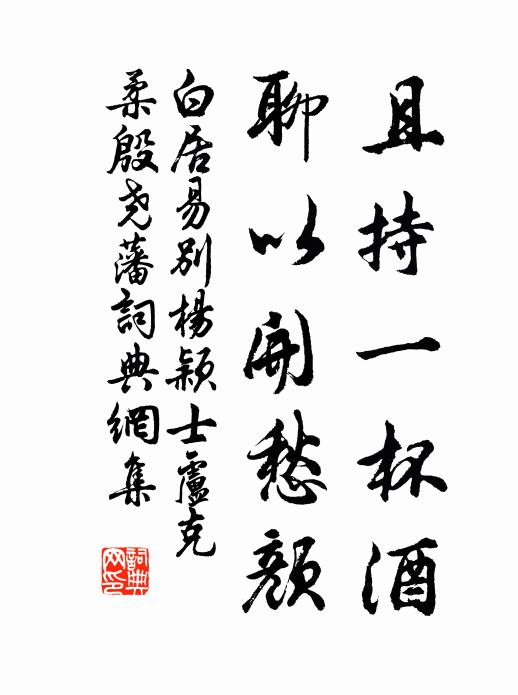 且持一杯酒
聊以開愁顏
白居易別楊穎士盧克
柔殷堯藩詞典網集
詞典網印